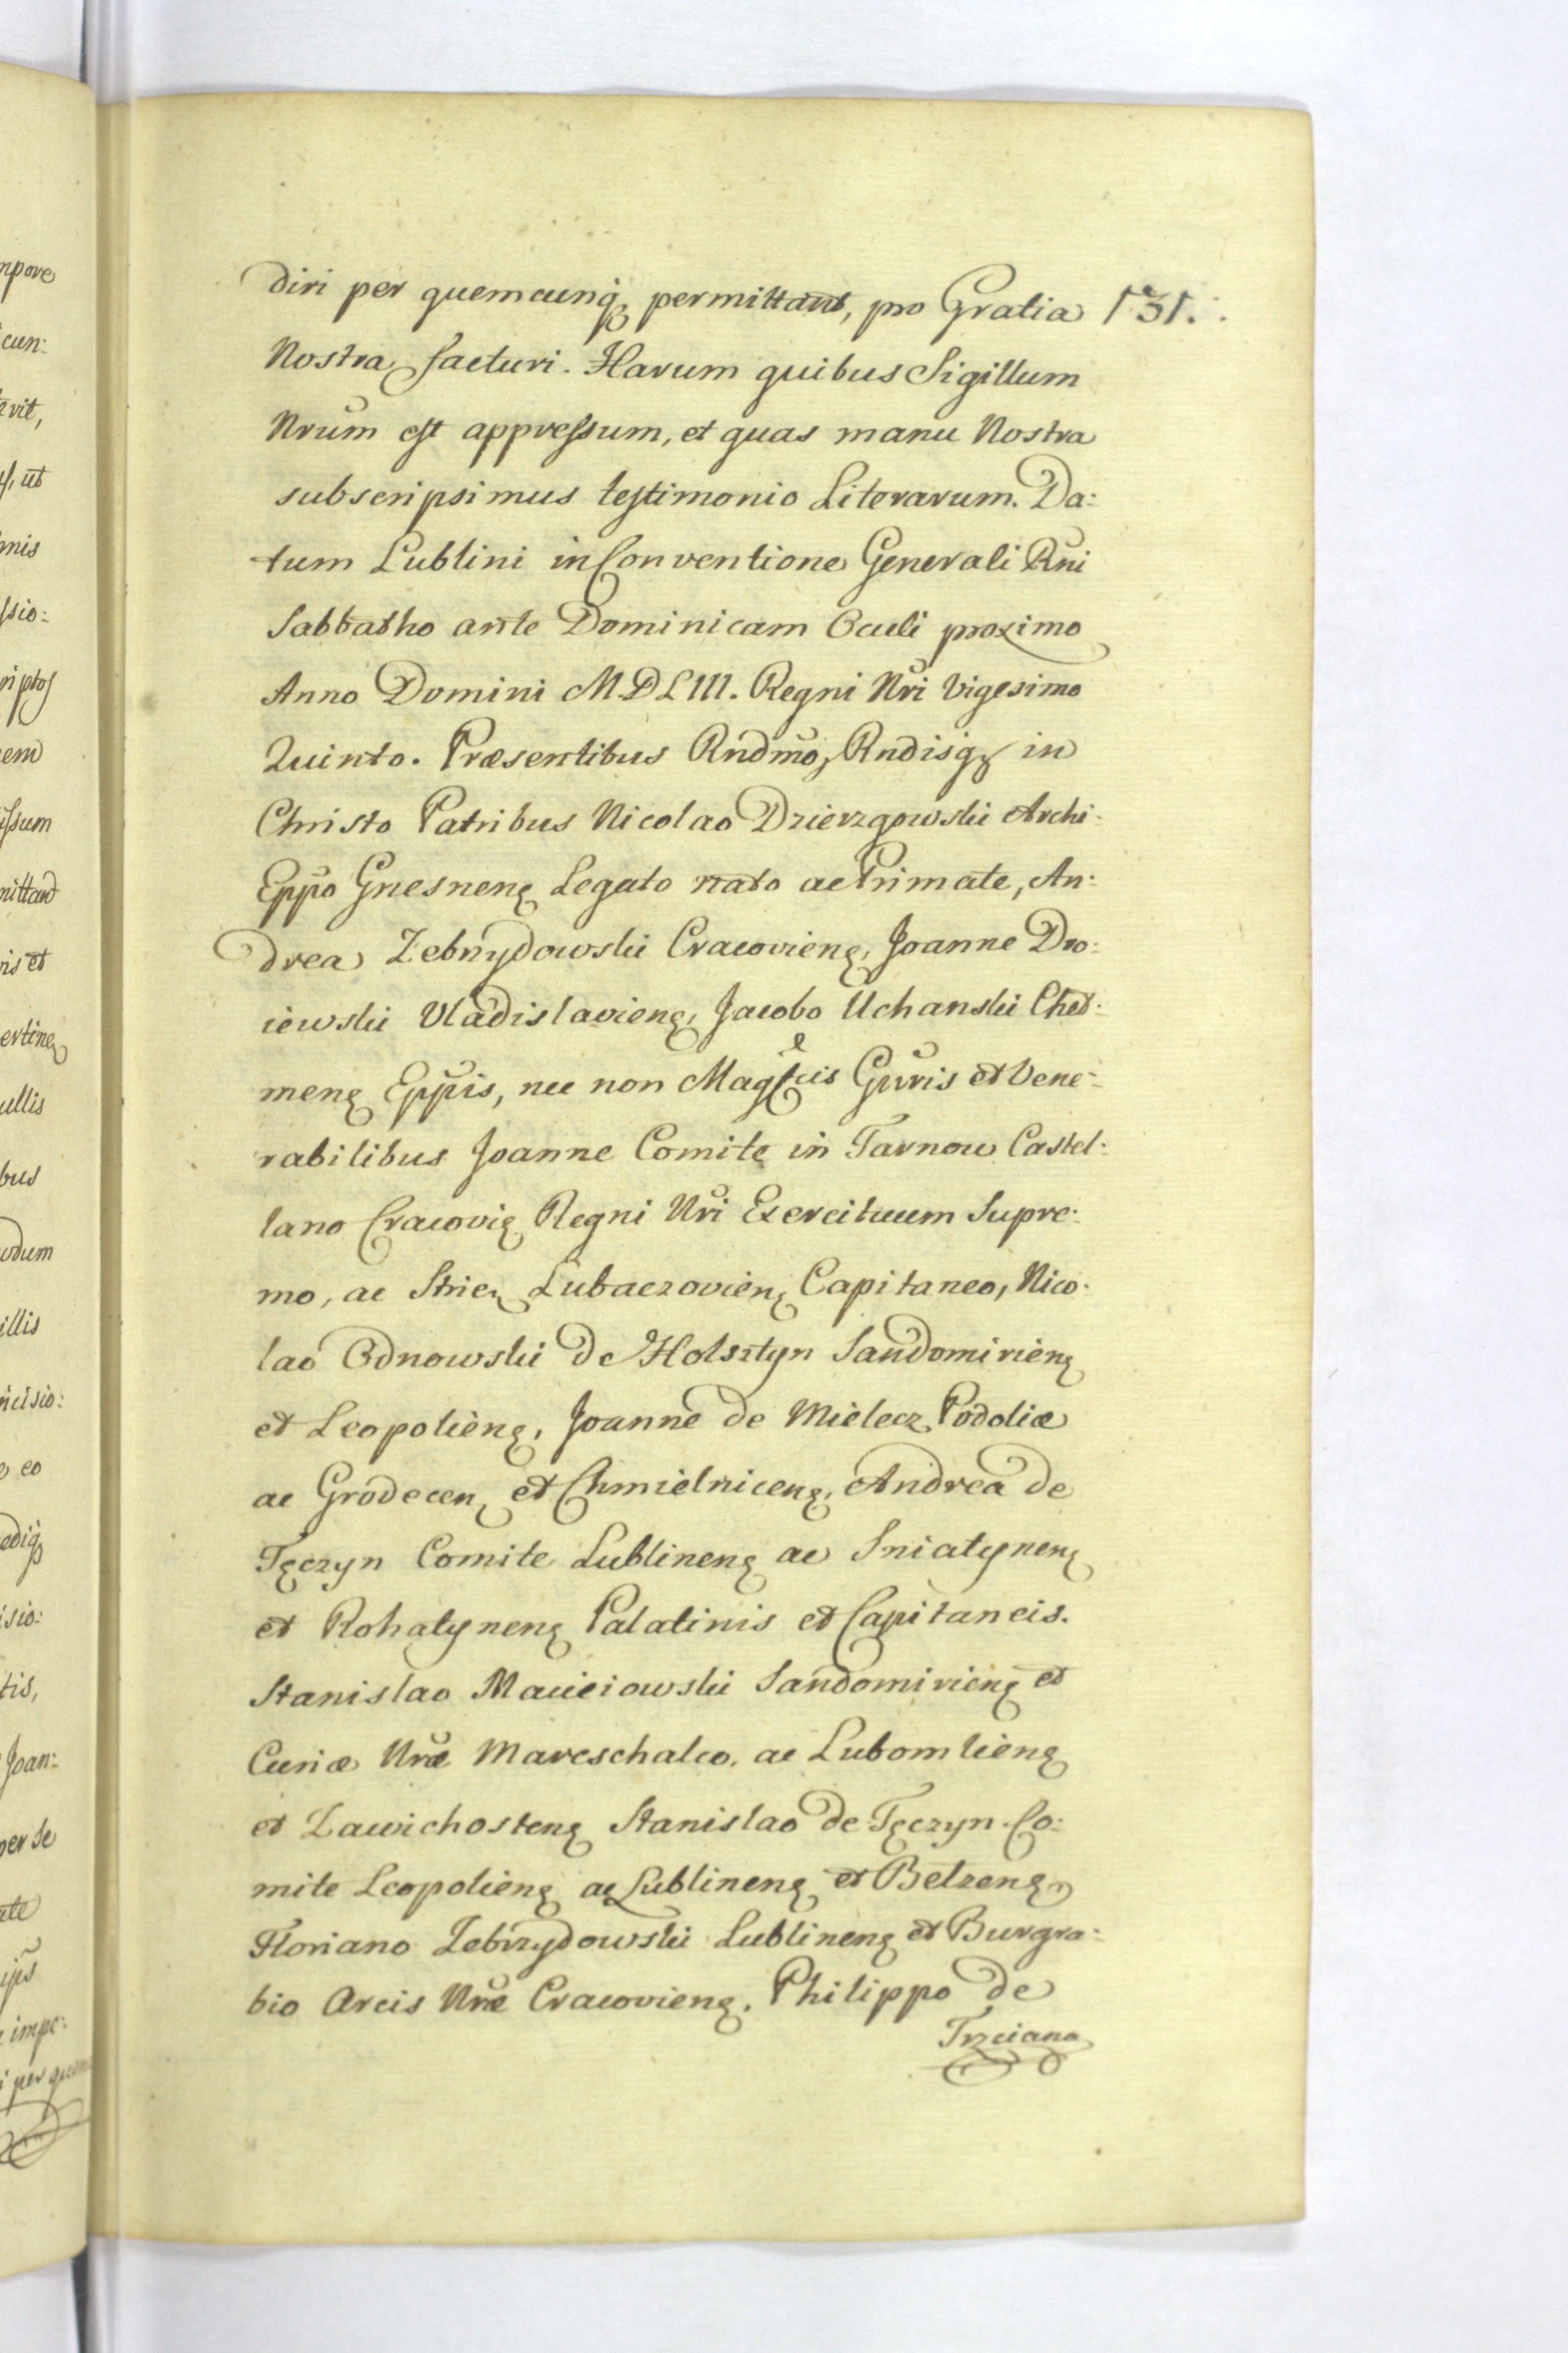 diri per quemcunq; permittant, pro Gratia 131.
Nostra facturi. Harum quibus Sigillum
Nrum est appressum, et quas manu Nostra
subscripsimus testimonio Literarum. Da:
tum Lublini in Conventione Generali Rni
Sabbatho ante Dominicam Oculi proximo
Anno Domini M.D.LIII. Regni Nri Vigesimo
Quinto. Præsentibus Rndmo, Rndisq; in
Christo Patribus Nicolao Dzierzgowski Archi:
Eppo Gnesnenę Legato nato ac Primate, An:
drea Zebrzydowski Cracovienę, Joanne Dro:
iewski Vladislavienę, Jacobo Uchanski Chel:
menę Eppis, nec non Magcis Gnris et Vene:
rabilibus Joanne Comite in Tarnow Castel:
lano Cracovię Regni Nri Exercituum Supre:
mo, ac Strien Lubaczovienę Capitaneo, Nico:
lao Odnowski de Holsztyn Sandomirienę
et Leopolienę, Joanne de Mielecz Podoliæ
ac Grodecen et Chmielnicenę, Andrea de
Tęczyn Comite Lublinenę ac Sniatynenę
et Rohatynenę Palatinis et Capitaneis.
Stanislao Macieiowski Sandomirienę et
Curiæ Nræ Mareschalco, ac Lubomlienę
et Zawichostenę Stanislao de Tęczyn Co:
mite Leopolienę ac Lublinenę et Belzenę,
Floriano Zebrzydowski Lublinenę et Burgra:
bio Arcis Nræ Cracovienę. Philippo de
Trzciana